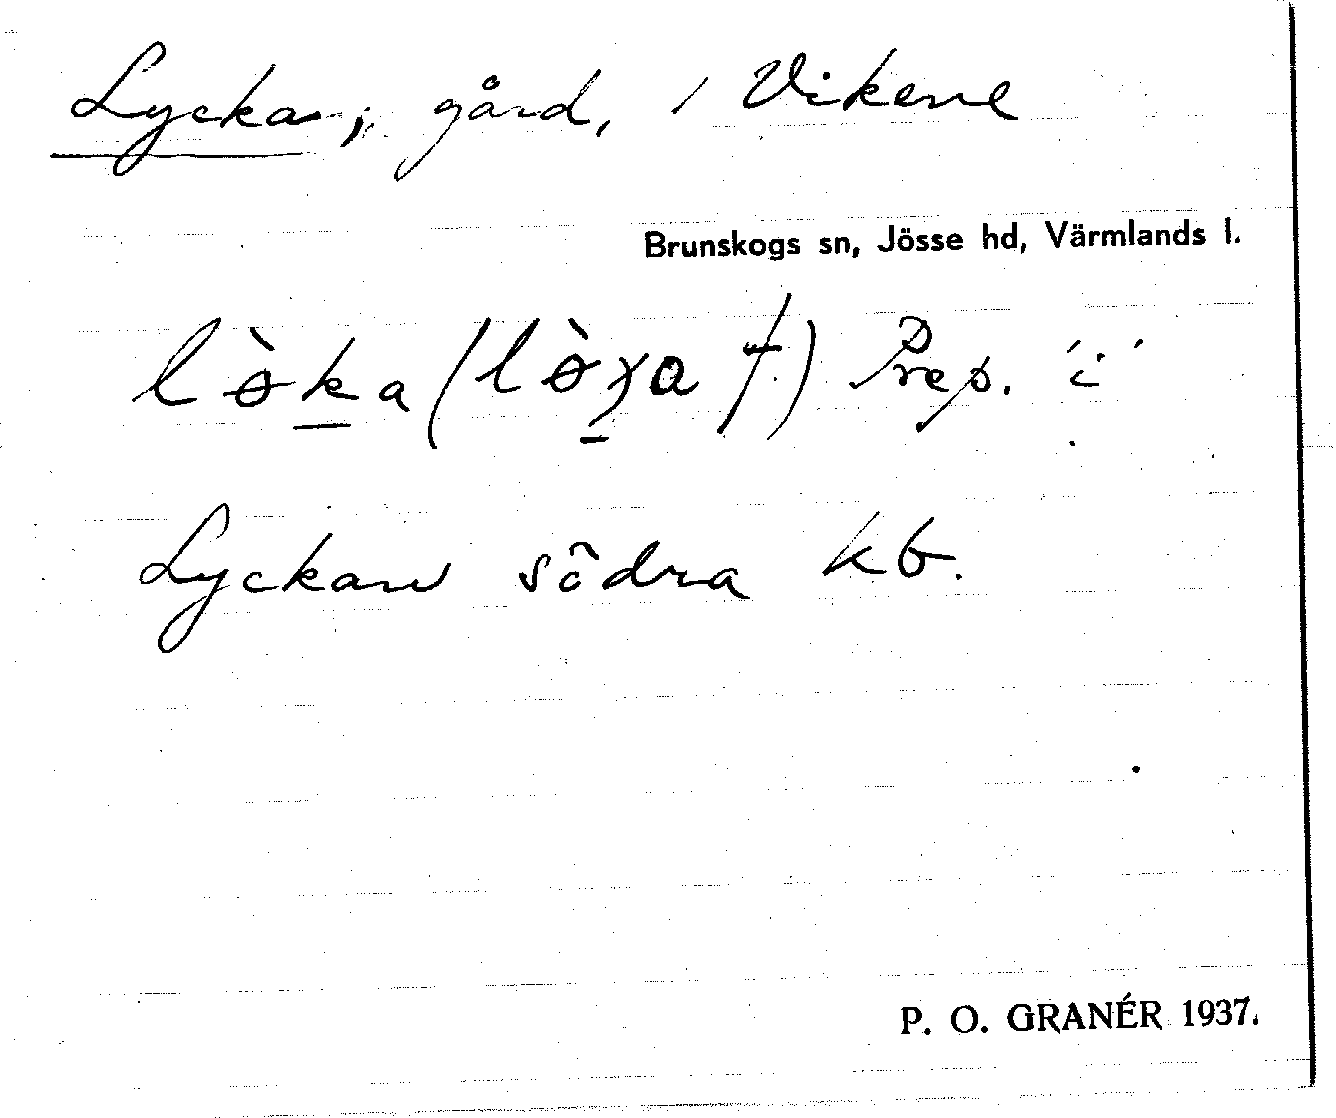 Lycka, gård, i Vikene
Brunskogs sn, Jösse hd, Värmlands l.
lɵ̀ka (lɵ̀χa †) Prep. "i"
Lyckan södra kb.
P. O. GRANÉR 1937.